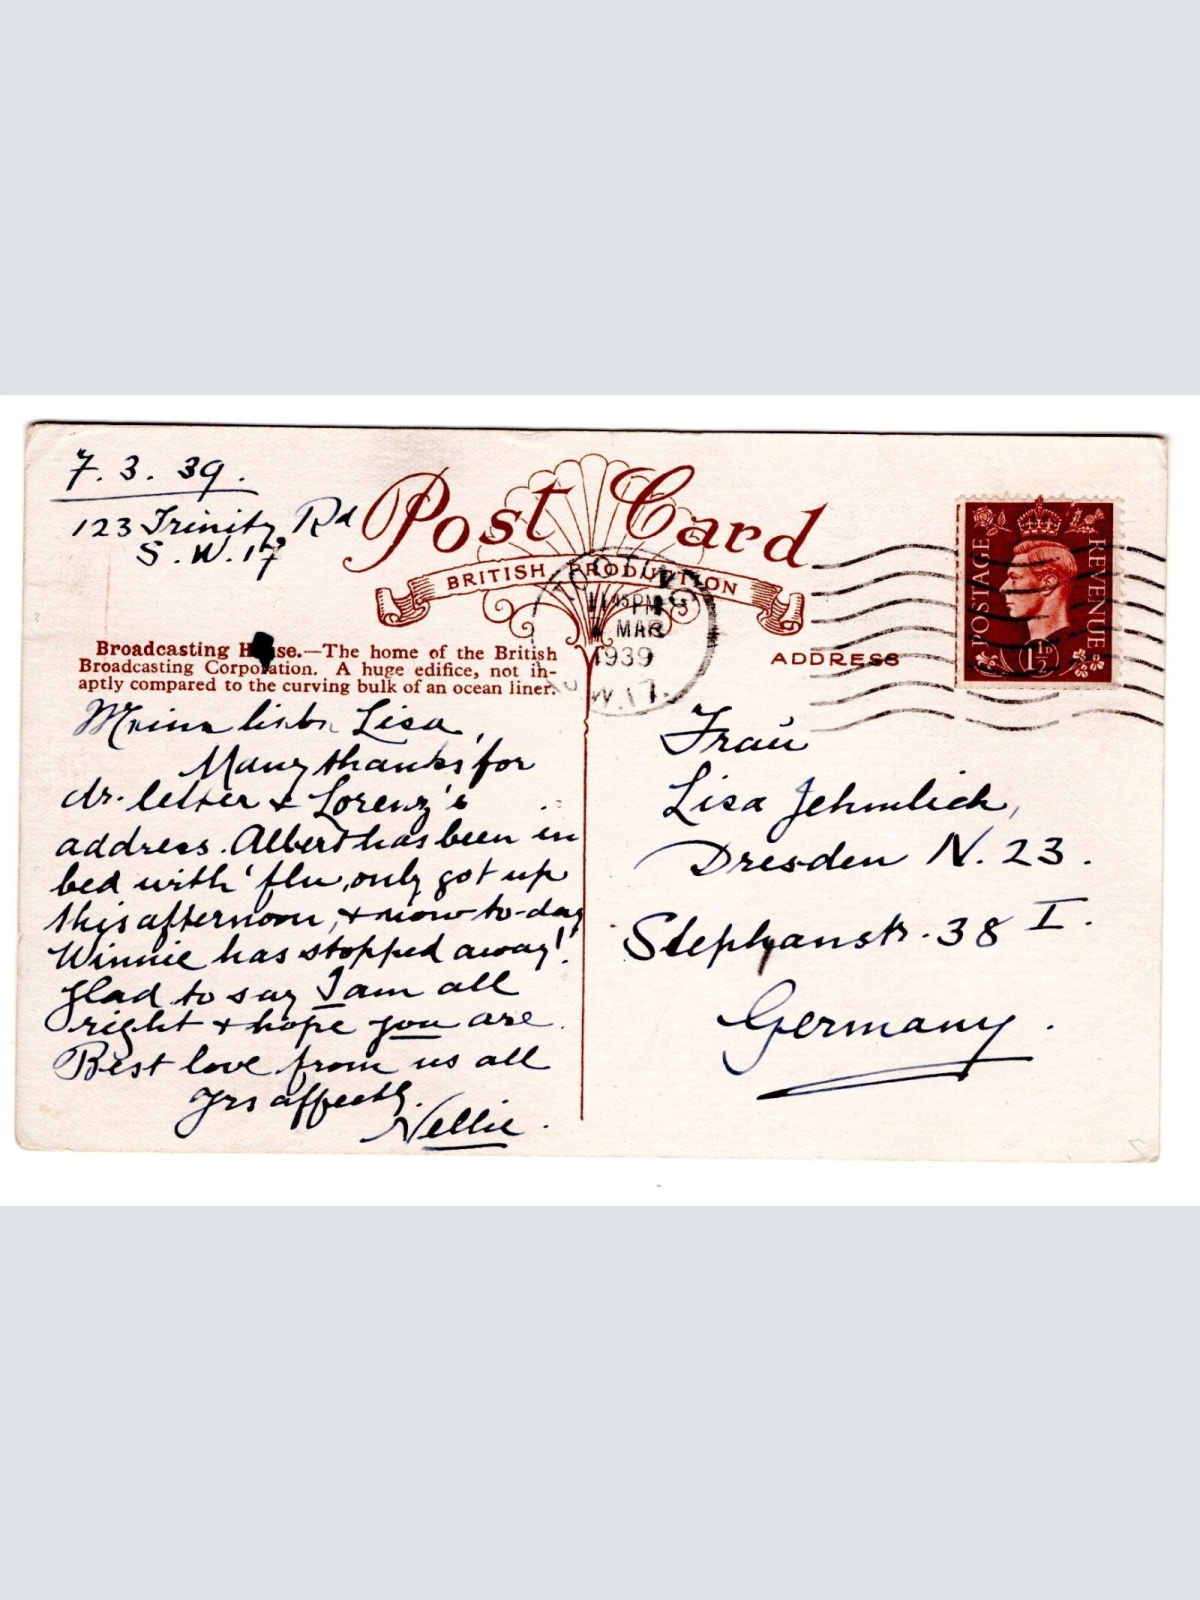 7. 3. 39.
123 Trinity Rd
S. W. 17
Post Card
BRITISH PRODUCTION
11 45 PM
MAR
1939
S.W.17.
POSTAGE
REVENUE
1½D
ADDRESS
Broadcasting H se.—The home of the British
Broadcasting Corporation. A huge edifice, not in-
aptly compared to the curving bulk of an ocean liner.
Meine liebe Lisa,
Many thanks for
dr. letter & Lorenz's
address. Albert has been in
bed with 'flu, only got up
this afternoon, & now to-day
Winnie has stopped away!
Glad to say I am all
right & hope you are.
Best love from us all
Yrs affectly.
Nellie.
Frau
Lisa Jehmlich,
Dresden N. 23.
Stephanstr. 38 I.
Germany.